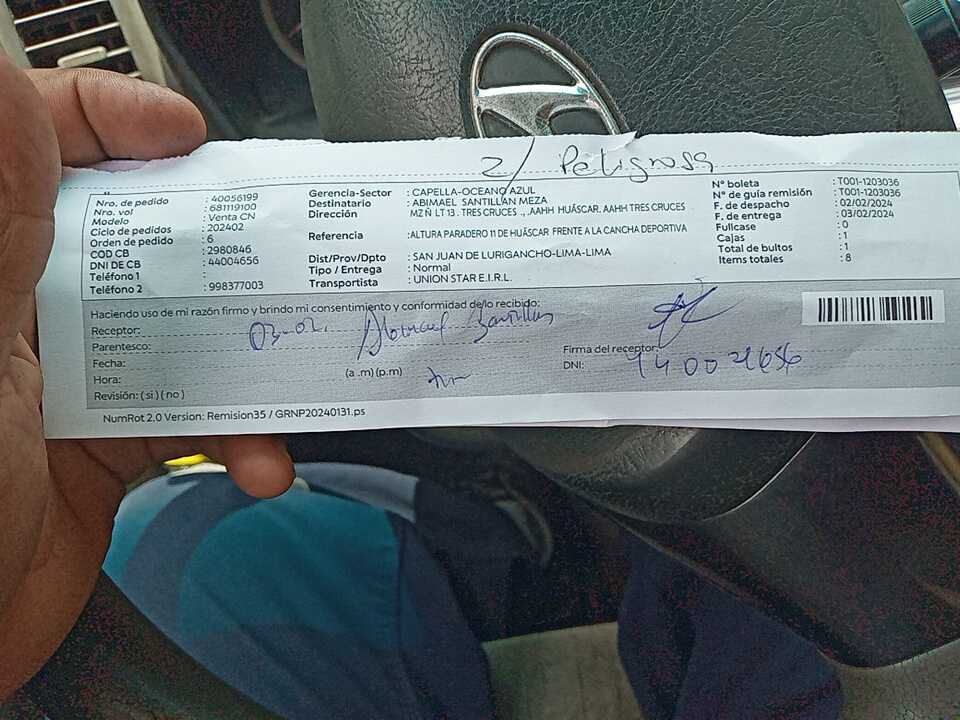 z/ Peligrosa
Nro. de pedido : 40056199
Nro. vol : 681119100
Modelo : Venta CN
Ciclo de pedidos : 202402
Orden de pedido : 6
COD CB : 2980846
DNI DE CB : 44004656
Teléfono 1 :
Teléfono 2 : 998377003
Gerencia-Sector : CAPELLA-OCEANO AZUL
Destinatario : ABIMAEL SANTILLAN MEZA
Dirección : MZ Ñ LT 13 . TRES CRUCES ., .AAHH HUÁSCAR. AAHH TRES CRUCES
Referencia : ALTURA PARADERO 11 DE HUÁSCAR FRENTE A LA CANCHA DEPORTIVA
Dist/Prov/Dpto : SAN JUAN DE LURIGANCHO-LIMA-LIMA
Tipo / Entrega : Normal
Transportista : UNION STAR E.I.R.L.
N° boleta : T001-1203036
N° de guía remisión : T001-1203036
F. de despacho : 02/02/2024
F. de entrega : 03/02/2024
Fullcase : 0
Cajas : 1
Total de bultos : 1
Items totales : 8
Haciendo uso de mi razón firmo y brindo mi consentimiento y conformidad de/lo recibido:
Receptor: 03-02. Abimael Santillan
Parentesco:
Fecha:
Hora: (a .m) (p.m)
Revisión: ( si ) ( no )
Firma del receptor:
DNI: 44004656
NumRot 2.0 Version: Remision35 / GRNP20240131.ps